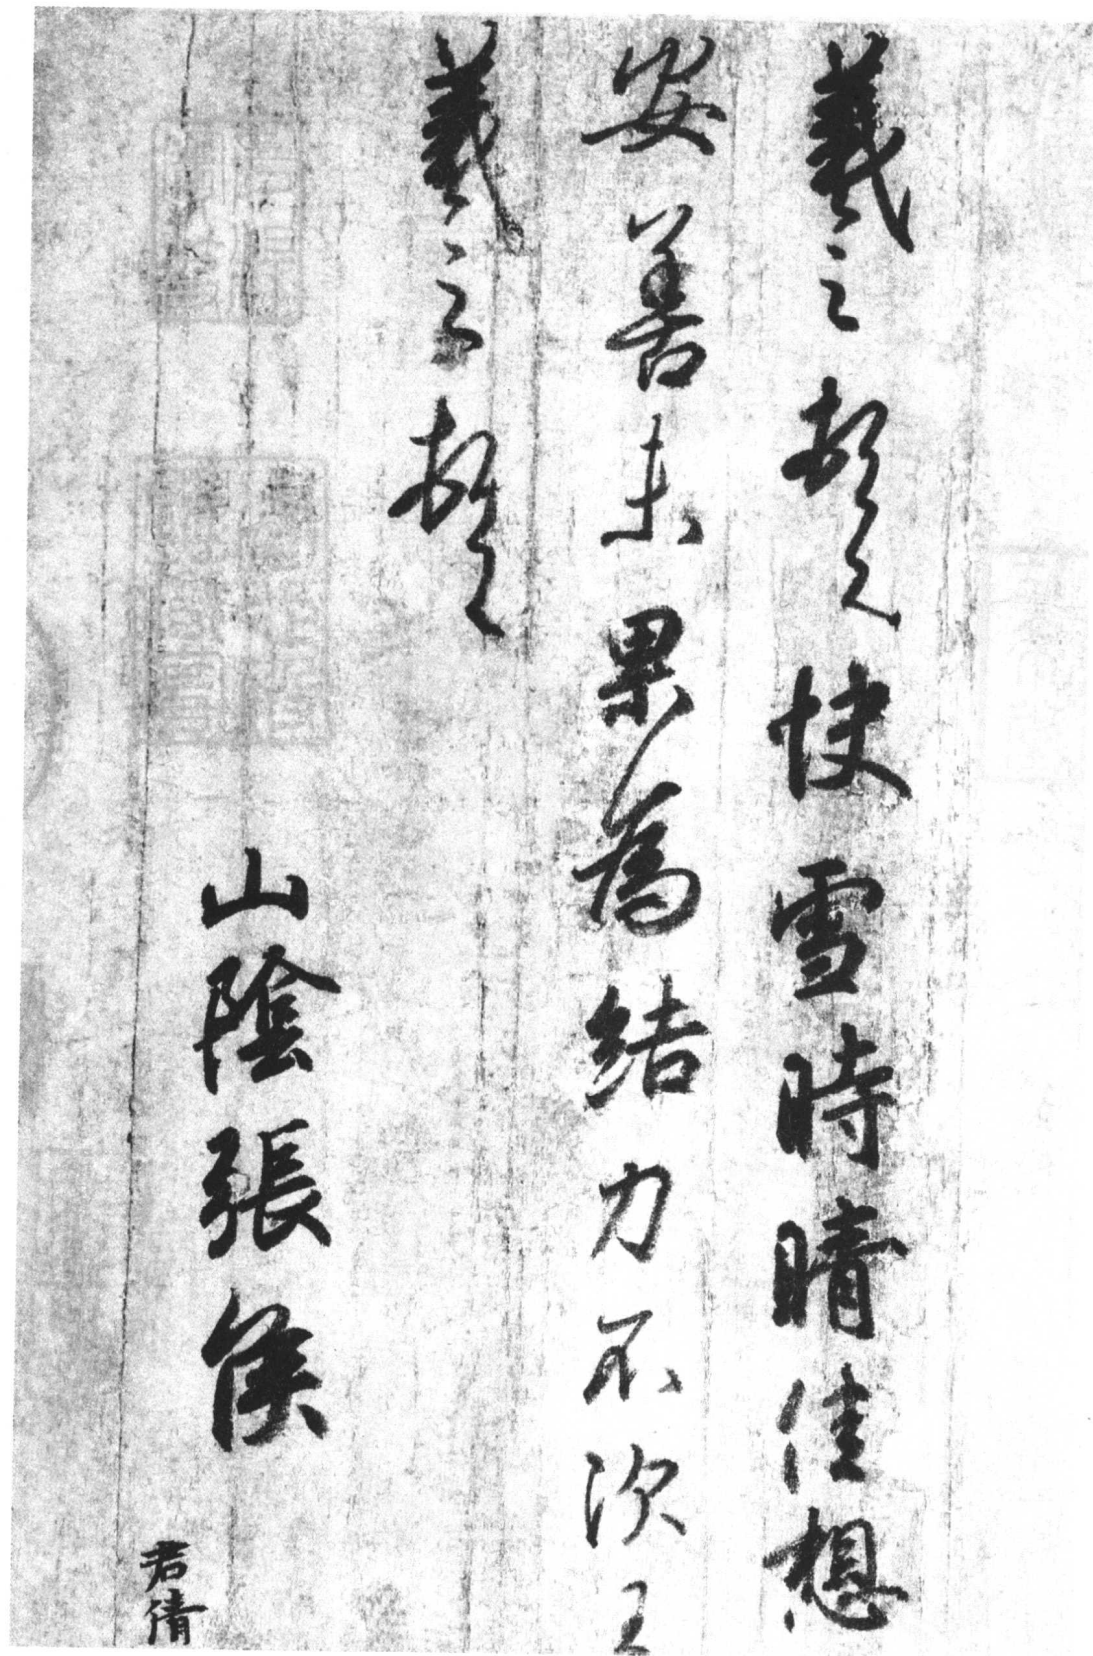 羲之頓首快雪時晴佳想
安善未果為結力不次王
羲之頓首
山陰張侯
君倩